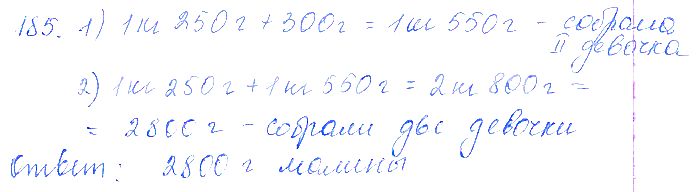 185. 1) 1 кг 250 г + 300 г = 1 кг 550 г - собрала
II девочка
2) 1 кг 250 г + 1 кг 550 г = 2 кг 800 г =
= 2800 г - собрали две девочки
Ответ: 2800 г малины